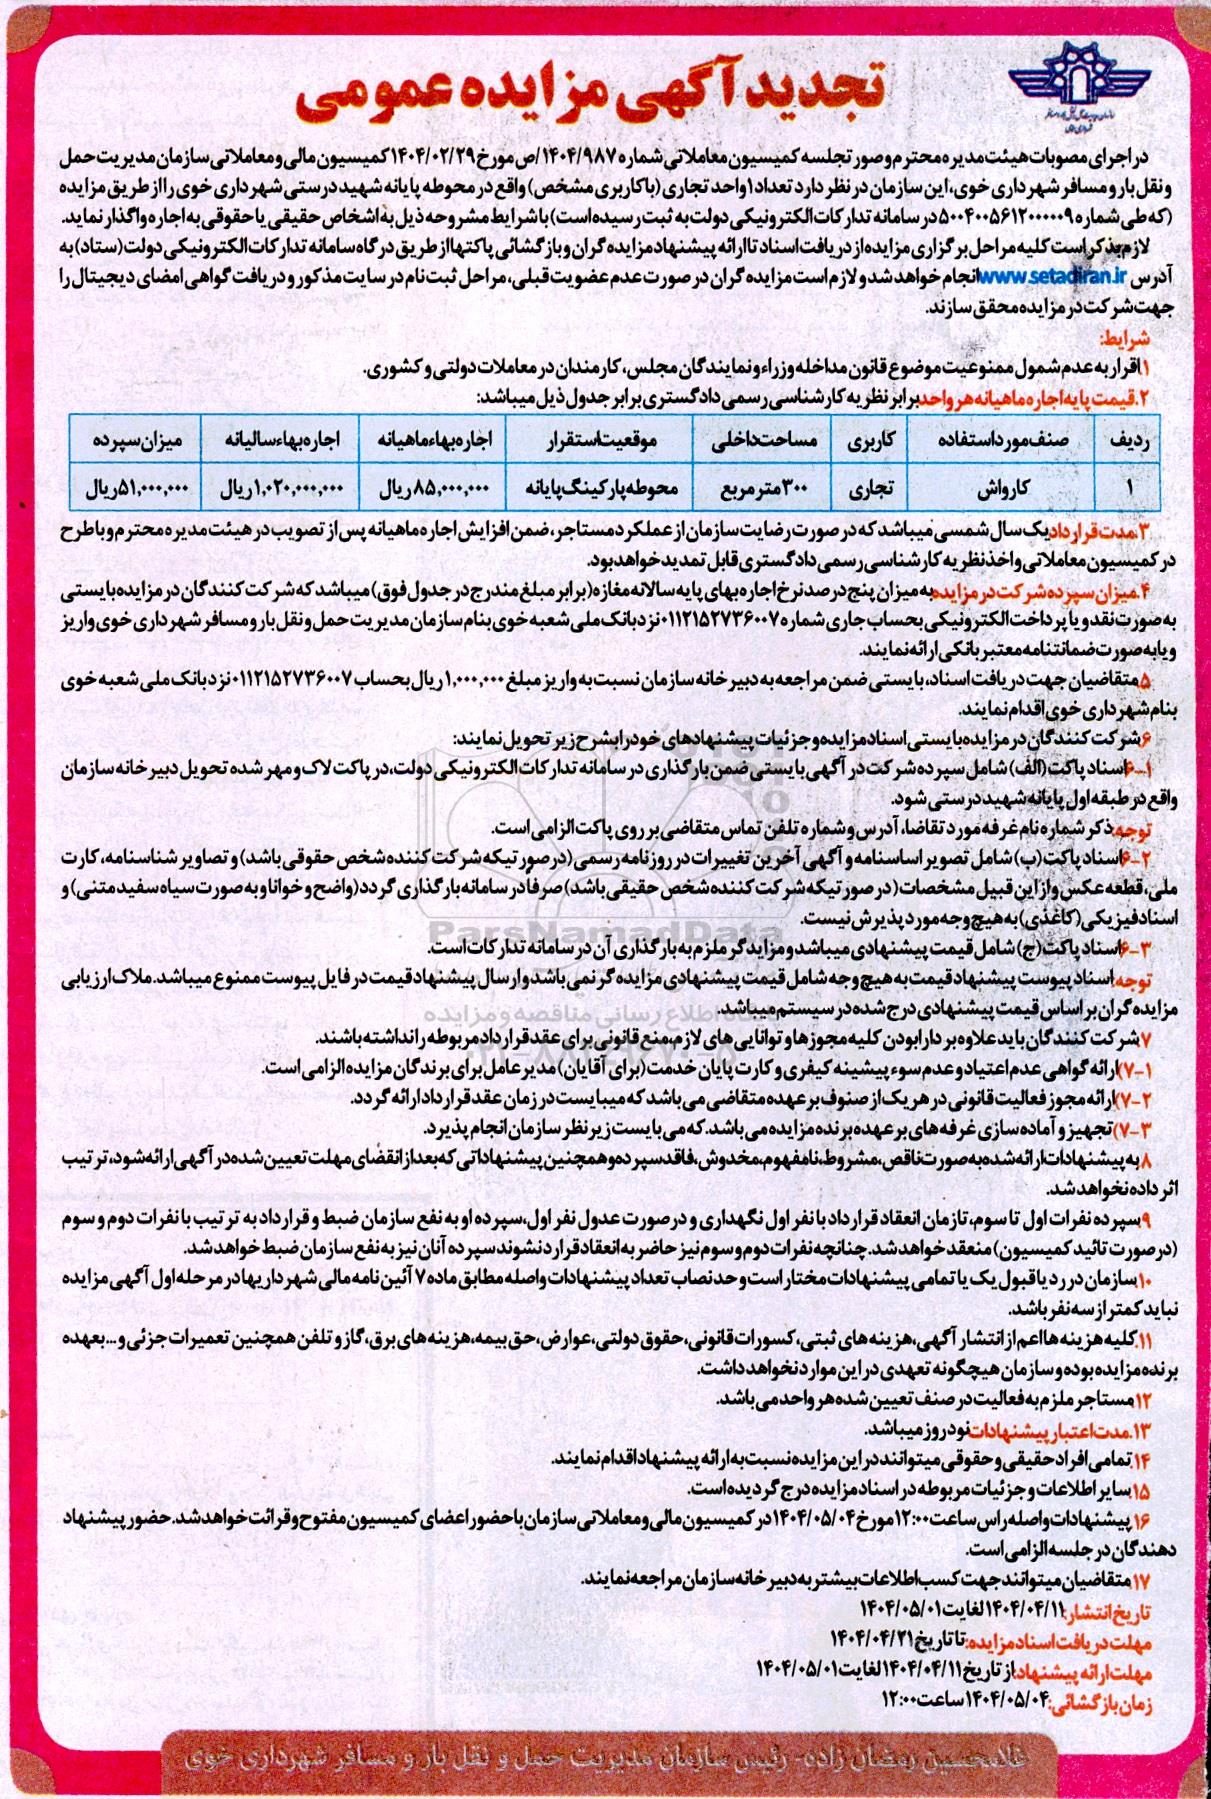 تجدید آگهی مزایده عمومی
در اجرای مصوبات هیئت مدیره محترم و صورتجلسه کمیسیون معاملاتی شماره ۱۴۰۴/۹۸۷/ص مورخ ۱۴۰۴/۰۲/۲۹ کمیسیون مالی و معاملاتی سازمان مدیریت حمل
و نقل بار و مسافر شهرداری خوی، این سازمان در نظر دارد تعداد ۱ واحد تجاری (با کاربری مشخص) واقع در محوطه پایانه شهید درستی شهرداری خوی را از طریق مزایده
(که طی شماره ۵۰۰۴۰۰۵۶۱۲۰۰۰۰۰۹ در سامانه تدارکات الکترونیکی دولت به ثبت رسیده است) با شرایط مشروحه ذیل به اشخاص حقیقی یا حقوقی به اجاره واگذار نماید.
لازم بذکر است کلیه مراحل برگزاری مزایده از دریافت اسناد تا ارائه پیشنهاد مزایده گران و بازگشائی پاکتها از طریق درگاه سامانه تدارکات الکترونیکی دولت (ستاد) به
آدرس www.setadiran.ir انجام خواهد شد و لازم است مزایده گران در صورت عدم عضویت قبلی، مراحل ثبت نام در سایت مذکور و دریافت گواهی امضای دیجیتال را
جهت شرکت در مزایده محقق سازند.
شرایط:
۱. اقرار به عدم شمول ممنوعیت موضوع قانون مداخله وزراء و نمایندگان مجلس، کارمندان در معاملات دولتی و کشوری.
۲. قیمت پایه اجاره ماهیانه هر واحد برابر نظریه کارشناسی رسمی دادگستری برابر جدول ذیل میباشد:
ردیف صنف مورد استفاده کاربری مساحت داخلی موقعیت استقرار اجاره بهاء ماهیانه اجاره بهاء سالیانه میزان سپرده
۱ کارواش تجاری ۳۰۰ متر مربع محوطه پارکینگ پایانه ۸۵,۰۰۰,۰۰۰ ریال ۱,۰۲۰,۰۰۰,۰۰۰ ریال ۵۱,۰۰۰,۰۰۰ ریال
۳. مدت قرارداد یک سال شمسی میباشد که در صورت رضایت سازمان از عملکرد مستاجر، ضمن افزایش اجاره ماهیانه پس از تصویب در هیئت مدیره محترم و با طرح
در کمیسیون معاملاتی و اخذ نظریه کارشناسی رسمی دادگستری قابل تمدید خواهد بود.
۴. میزان سپرده شرکت در مزایده به میزان پنج درصد نرخ اجاره بهای پایه سالانه مغازه (برابر مبلغ مندرج در جدول فوق) میباشد که شرکت کنندگان در مزایده بایستی
به صورت نقد و یا پرداخت الکترونیکی بحساب جاری شماره ۰۱۱۲۱۵۲۷۳۶۰۰۷ نزد بانک ملی شعبه خوی بنام سازمان مدیریت حمل و نقل بار و مسافر شهرداری خوی واریز
و یا به صورت ضمانتنامه معتبر بانکی ارائه نمایند.
۵. متقاضیان جهت دریافت اسناد، بایستی ضمن مراجعه به دبیرخانه سازمان نسبت به واریز مبلغ ۱,۰۰۰,۰۰۰ ریال بحساب ۰۱۱۲۱۵۲۷۳۶۰۰۷ نزد بانک ملی شعبه خوی
بنام شهرداری خوی اقدام نمایند.
۶. شرکت کنندگان در مزایده بایستی اسناد مزایده و جزئیات پیشنهادهای خود را بشرح زیر تحویل نمایند:
۶-۱ اسناد پاکت (الف) شامل سپرده شرکت در آگهی بایستی ضمن بارگذاری در سامانه تدارکات الکترونیکی دولت، در پاکت لاک و مهر شده تحویل دبیرخانه سازمان
واقع در طبقه اول پایانه شهید درستی شود.
توجه: ذکر شماره نام غرفه مورد تقاضا، آدرس و شماره تلفن تماس متقاضی بر روی پاکت الزامی است.
۶-۲ اسناد پاکت (ب) شامل تصویر اساسنامه و آگهی آخرین تغییرات در روزنامه رسمی (درصورتیکه شرکت کننده شخص حقوقی باشد) و تصاویر شناسنامه، کارت
ملی، قطعه عکس و از این قبیل مشخصات (درصورتیکه شرکت کننده شخص حقیقی باشد) صرفاً در سامانه بارگذاری گردد (واضح و خوانا و به صورت سیاه سفید متنی) و
اسناد فیزیکی (کاغذی) به هیچ وجه مورد پذیرش نیست.
۶-۳ اسناد پاکت (ج) شامل قیمت پیشنهادی میباشد و مزایدگر ملزم به بارگذاری آن در سامانه تدارکات است.
توجه: اسناد پیوست پیشنهاد قیمت به هیچ وجه شامل قیمت پیشنهادی مزایده گر نمی باشد و ارسال پیشنهاد قیمت در فایل پیوست ممنوع میباشد. ملاک ارزیابی
مزایده گران بر اساس قیمت پیشنهادی درج شده در سیستم میباشد.
۷. شرکت کنندگان باید علاوه بر دارا بودن کلیه مجوزها و توانایی های لازم، منع قانونی برای عقد قرارداد مربوطه را نداشته باشند.
۷-۱) ارائه گواهی عدم اعتیاد و عدم سوء پیشینه کیفری و کارت پایان خدمت (برای آقایان) مدیر عامل برای برندگان مزایده الزامی است.
۷-۲) ارائه مجوز فعالیت قانونی در هر یک از صنوف بر عهده متقاضی می باشد که میبایست در زمان عقد قرارداد ارائه گردد.
۷-۳) تجهیز و آماده سازی غرفه های بر عهده برنده مزایده می باشد. که می بایست زیر نظر سازمان انجام پذیرد.
۸. به پیشنهادات ارائه شده به صورت ناقص، مشروط، نامفهوم، مخدوش، فاقد سپرده و همچنین پیشنهاداتی که بعد از انقضای مهلت تعیین شده در آگهی ارائه شود، ترتیب
اثر داده نخواهد شد.
۹. سپرده نفرات اول تا سوم، تا زمان انعقاد قرارداد با نفر اول نگهداری و در صورت عدول نفر اول، سپرده او به نفع سازمان ضبط و قرارداد به ترتیب با نفرات دوم و سوم
(درصورت تائید کمیسیون) منعقد خواهد شد. چنانچه نفرات دوم و سوم نیز حاضر به انعقاد قرارد نشوند سپرده آنان نیز به نفع سازمان ضبط خواهد شد.
۱۰. سازمان در رد یا قبول یک یا تمامی پیشنهادات مختار است و حد نصاب تعداد پیشنهادات واصله مطابق ماده ۷ آئین نامه مالی شهرداریها در مرحله اول آگهی مزایده
نباید کمتر از سه نفر باشد.
۱۱. کلیه هزینه ها اعم از انتشار آگهی، هزینه های ثبتی، کسورات قانونی، حقوق دولتی، عوارض، حق بیمه، هزینه های برق، گاز و تلفن همچنین تعمیرات جزئی و... بعهده
برنده مزایده بوده و سازمان هیچگونه تعهدی در این موارد نخواهد داشت.
۱۲. مستاجر ملزم به فعالیت در صنف تعیین شده هر واحد می باشد.
۱۳. مدت اعتبار پیشنهادات نود روز میباشد.
۱۴. تمامی افراد حقیقی و حقوقی میتوانند در این مزایده نسبت به ارائه پیشنهاد اقدام نمایند.
۱۵. سایر اطلاعات و جزئیات مربوطه در اسناد مزایده درج گردیده است.
۱۶. پیشنهادات واصله راس ساعت ۱۲:۰۰ مورخ ۱۴۰۴/۰۵/۰۴ در کمیسیون مالی و معاملاتی سازمان با حضور اعضای کمیسیون مفتوح و قرائت خواهد شد. حضور پیشنهاد
دهندگان در جلسه الزامی است.
۱۷. متقاضیان میتوانند جهت کسب اطلاعات بیشتر به دبیرخانه سازمان مراجعه نمایند.
تاریخ انتشار: ۱۴۰۴/۰۴/۱۱ لغایت ۱۴۰۴/۰۵/۰۱
مهلت دریافت اسناد مزایده: تا تاریخ ۱۴۰۴/۰۴/۲۱
مهلت ارائه پیشنهاد: از تاریخ ۱۴۰۴/۰۴/۱۱ لغایت ۱۴۰۴/۰۵/۰۱
زمان بازگشائی: ۱۴۰۴/۰۵/۰۴ ساعت ۱۲:۰۰
غلامحسین رمضان زاده- رئیس سازمان مدیریت حمل و نقل بار و مسافر شهرداری خوی
ParsNamadData